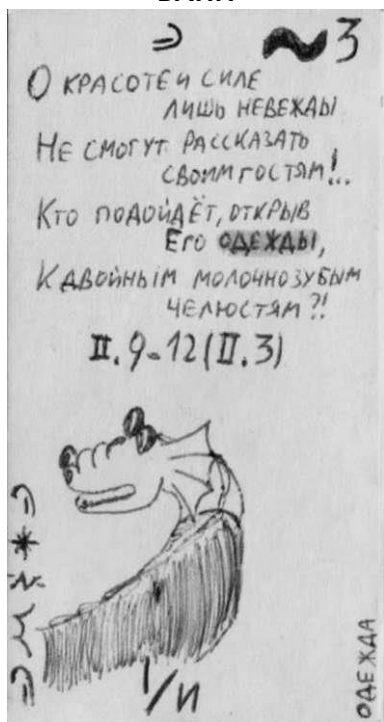 3
О КРАСОТЕ И СИЛЕ
ЛИШЬ НЕВЕЖДЫ
НЕ СМОГУТ РАССКАЗАТЬ
СВОИМ ГОСТЯМ!..
КТО ПОДОЙДЁТ, ОТКРЫВ
ЕГО ОДЕЖДЫ,
К ДВОЙНЫМ МОЛОЧНОЗУБЫМ
ЧЕЛЮСТЯМ?!
II.9-12(II.3)
1/И
ОДЕЖДА